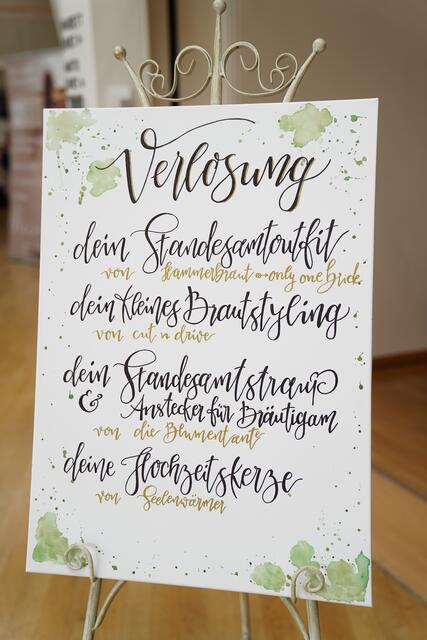 Verlosung
dein Standesamtoutfit
von Kammerbraut only one brick
dein kleines Brautstyling
von cut n drive
dein Standesamtstrauß
& Anstecker für Bräutigam
von die Blumentante
deine Hochzeitskerze
von Seelenwärmer